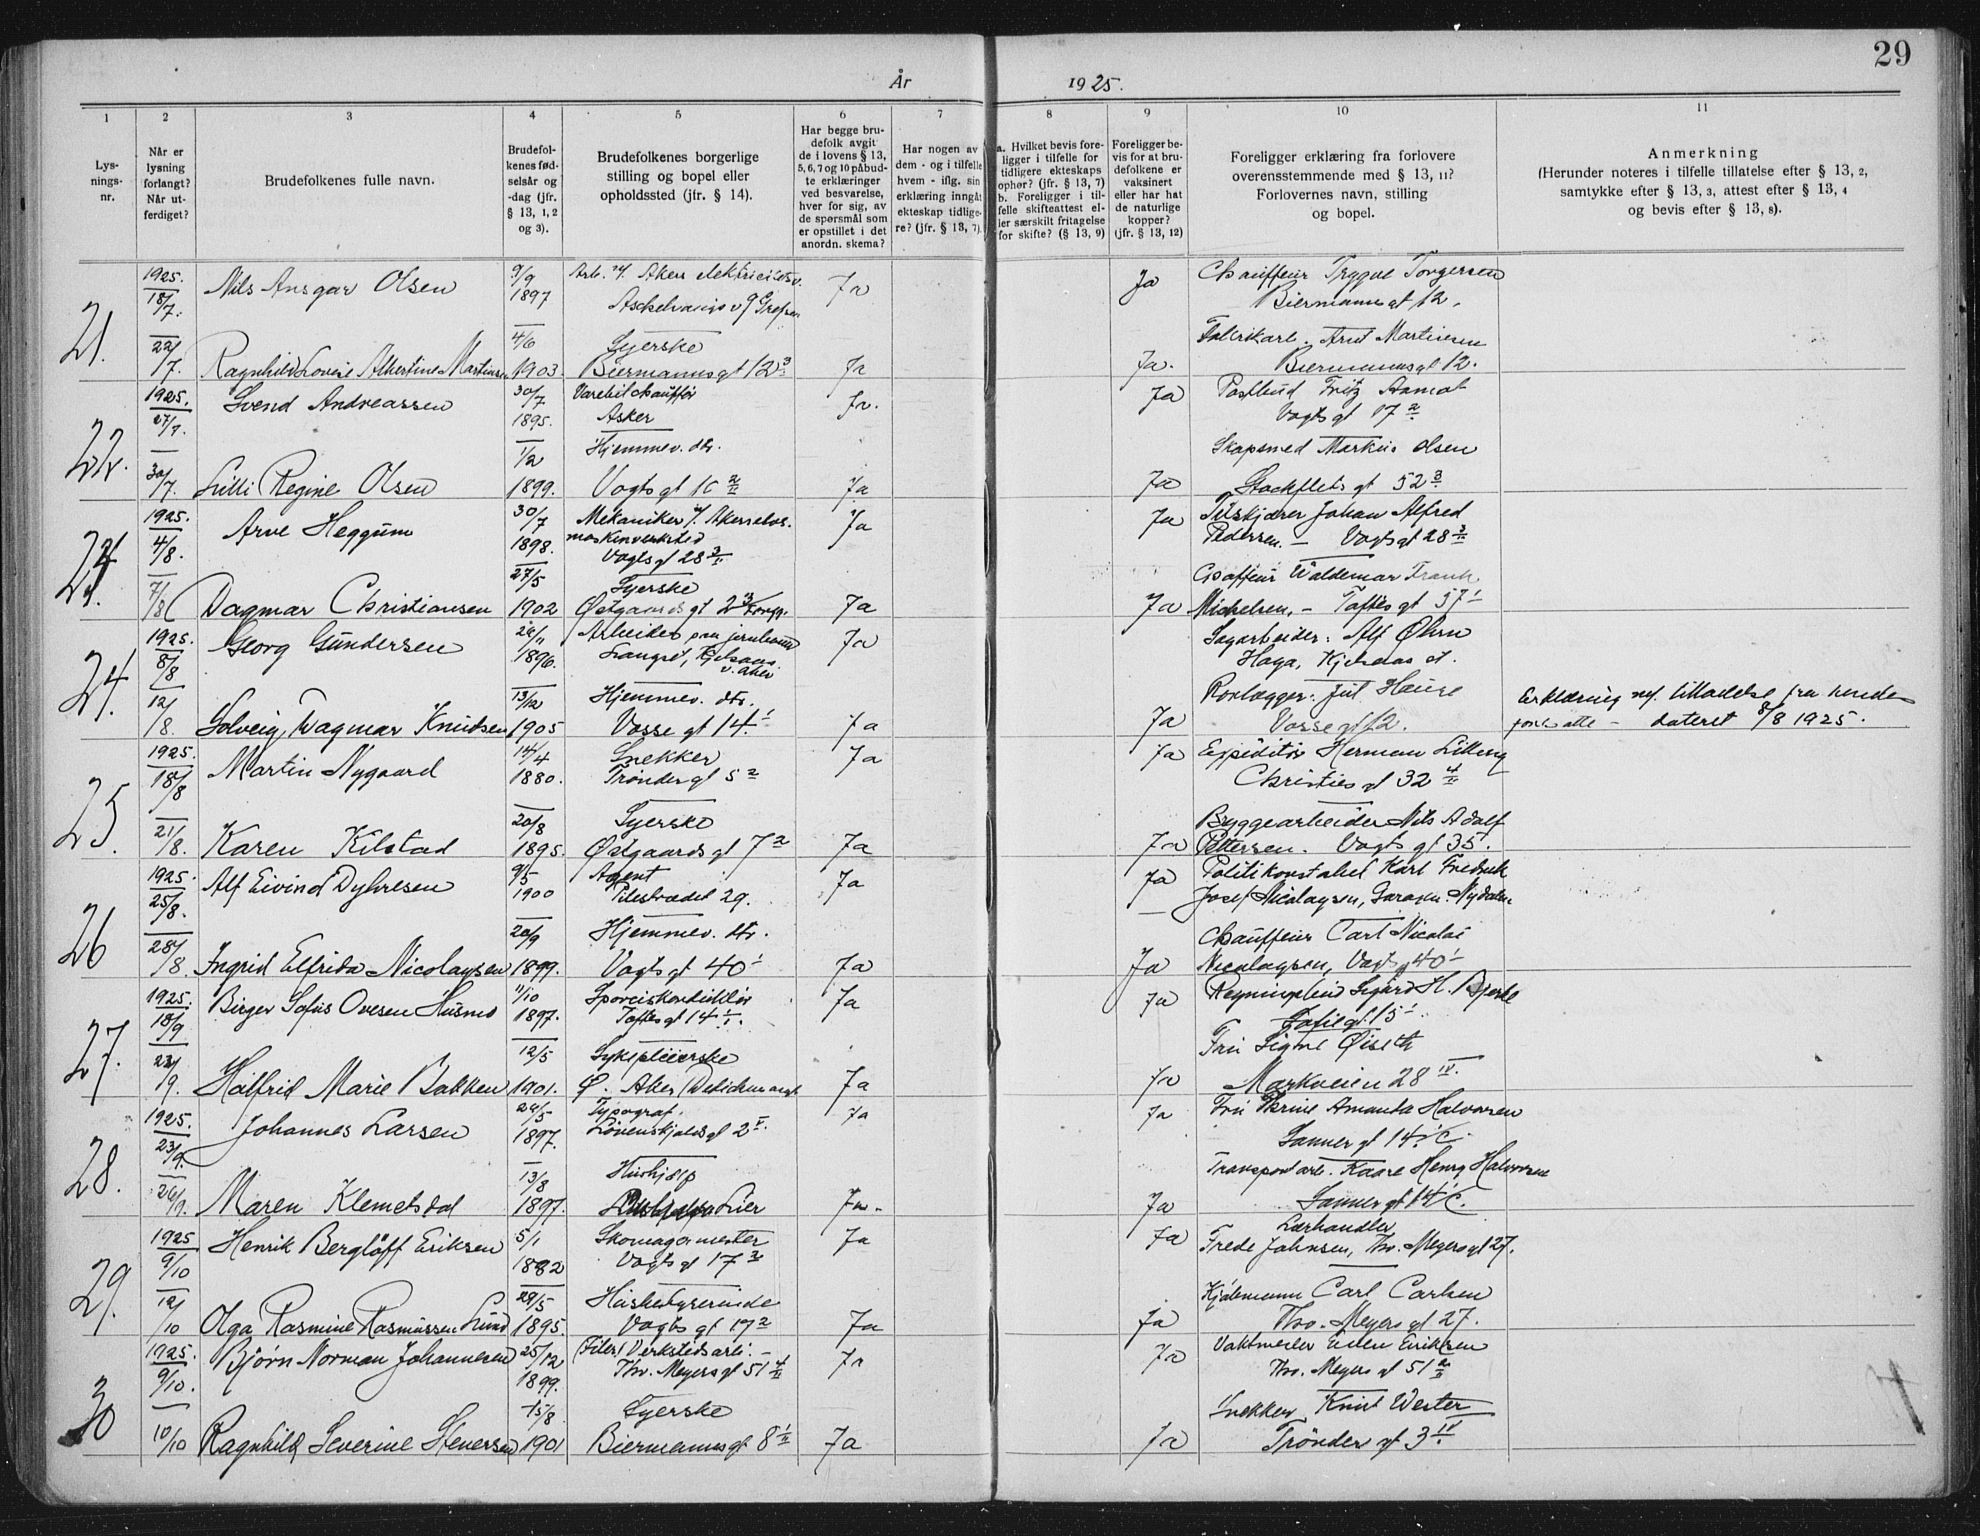 29
År 1925.
1 2 3 4 5 6 7 8 9 10 11
Lys-
nings-
nr.
Når er
lysning
forlangt?
Når ut-
ferdiget?
Brudefolkenes fulle navn.
Brudefol-
kenes fød-
selsår og
-dag (jfr.
§ 13, 1, 2
og 3).
Brudefolkenes borgerlige
stilling og bopel eller
opholdssted (jfr. § 14).
Har begge bru-
defolk avgit
de i lovens § 13,
5, 6, 7 og 10 påbud-
te erklæringer
ved besvarelse,
hver for sig, av
de spørsmål som
er opstillet i det
anordn. skema?
Har nogen av
dem - og i tilfelle
hvem - iflg. sin
erklæring inngåt
ekteskap tidlige-
re? (jfr. § 13, 7).
a. Hvilket bevis fore-
ligger i tilfelle for
tidligere ekteskaps
ophør? (jfr. § 13, 7)
b. Foreligger i til-
felle skifteattest el-
ler særskilt fritagelse
for skifte? (§ 13, 9)
Foreligger be-
vis for at bru-
defolkene er
vaksinert
eller har hat
de naturlige
kopper?
(jfr. § 13, 12)
Foreligger erklæring fra forlovere
overensstemmende med § 13, 11?
Forlovernes navn, stilling
og bopel.
Anmerkning
(Herunder noteres i tilfelle tillatelse efter § 13, 2,
samtykke efter § 13, 3, attest efter § 13, 4
og bevis efter § 13, 8).
21.
1925. 18/7. Nils Ansgar Olsen 9/9 1897 Arb. v/ Akers Ja Ja Chauffeur Trygve Torgersen
Biermanns gt 12.
4/6 Syerske Arnt Martinsen
22/7. Ragnhild Lovise Albertine Martinsen 1903. Biermanns gt 12 3 Ja Ja. Biermanns gt 12.
22.
1925. 27/7. Svend Andreassen 30/7 1895. Varebilchauffør Ja. Ja Postbud Fritz Aamot
Asker Vogts gt 17 2
1/2 Hjemmev. dtr. Markus Olsen
30/7. Lilli Regine Olsen 1899. Vogts gt Ja Ja Stockflets gt 52 3
23.
1925. 4/8. Arve Heggum 30/7 1898. Mekaniker v/. Akerselvs. Ja Ja Johan Alfred
maskinverksted Pedersen. – Vogts gt 28
Vogts gt 28
27/5 Syerske Waldemar Frank
7/8 Dagmar Christiansen 1902 Østgaards gt Ja Ja Michelsen. – Toftes gt 57 1
24.
1925. 8/8 Georg Gundersen 1896. Arbeider paa jernbanen Ja Sagarbeider: Alf Øhrn
Haga, Kjelsaas st.
13/12 Hjemmev. dtr. Rørlægger:
12/8. Solveig Dagmar Knudsen 1905 Vosse gt 14. 1 Ja Ja Vosse gt 12. Erklæring tilladelse fra
dateret 8/8 1925.
25.
1925. 18/8 Martin Nygaard 14/4 1880. Snekker Ja Ja Expeditør Herman
Trønder gt 5 2 Christies gt 32
20/8 Syerske Byggearbeider Nils Adolf
21/8. Karen Kilstad 1895. Østgaards gt 7 2 Ja Ja Pettersen. Vogts gt 35.
26
1925. 25/8. Alf Eivind Dyhresen 9/5 1900 Agent Ja Ja Politikonstabel Karl Fredrik
Pilestrædet 29. Josef Nicolaysen, Nydalen
20/9 Hjemmev. dtr. Chauffeur Carl Nicolai
28/8. Ingrid Elfrida Nicolaysen 1899. Vogts gt 40 1 Ja Ja Nicolaysen, Vogts gt 40 1
27.
1925. 18/9 Birger Sofus Ovesen Husmo 11/10 1897. Ja Ja Sigurd H. Bjerke
Toftes gt 14 Sofie gt. 15
12/5 Sykepleierske Fru Signe Øiseth
9. Halfrid Marie Bakken 1901. Ø. Aker Ja Ja Markveien 28 IV.
28.
1925. 23/9. Johannes Larsen 1897. Typograf. Ja Ja Fru Amanda Halvorsen
Løvenskjolds gt 2 Sanner gt 14
13/8 Hushjelp Transportarb. Kaare Henry Halvorsen
26/9. Maren Klemetsdal 1897. Lier Ja. Ja Sanner gt 14 C.
29.
1925 9/10 Henrik Bergløff Eriksen 5/1 1882 Skomagermester Ja Ja Lærhandler
Vogts gt 17 Frede Johnsen, Thv. Meyers gt 27.
29/5 Husbestyrerinde Kjølemann Carl Carlsen
12/10 Olga Rasmine Rasmussen Lund 1895. Vogts gt 17 2 Ja Ja Thv. Meyers gt 27.
30
1925. 9/10. Bjørn Norman Johannesen 25/12 1899. (Filer) Verkstedsarb. – Ja Ja Eriksen
Thv. Meyers gt 51 Thv. Meyers gt 51
15/8. Syerske Snekker Knut Wester
10/10 Ragnhild Severine Stenersen 1901 Biermanns gt 8 Ja Ja Trønder gt 3